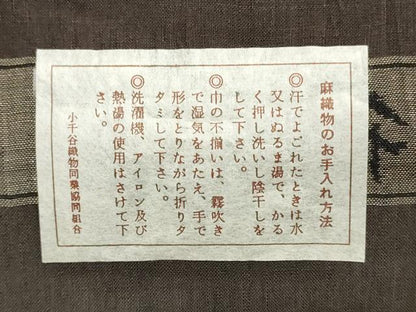 麻織物のお手入れ方法
◎汗でよごれたときは水
又はぬるま湯で、かる
く押し洗いし陰干しを
して下さい。
◎巾の不揃いは、霧吹き
で湿気をあたえ、手で
形をとりながら折りタ
タミして下さい。
◎洗濯機、アイロン及び
熱湯の使用はさけて下
さい。
小千谷織物同業協同組合